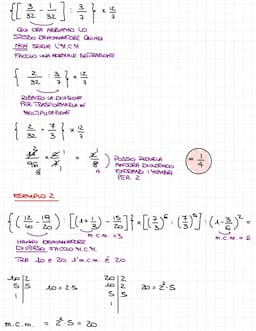 {[ 3/32 - 1/32 ] : 3/7 } × 12/7
QUI ORA ABBIAMO LO
STESSO DENOMINATORE QUINDI
NON SERVE L'M.C.M
FACCIO UNA NORMALE SOTTRAZIONE
{ 2/32 : 3/7 } × 12/7
RIBALTO LA DIVISIONE
PER TRASFORMARLA IN
MOLTIPLICAZIONE
{ 2/32 × 7/3 } × 12/7
POSSO RIDURLA
ANCORA DIVIDENDO
ENTRAMBI I NUMERI
PER 2
= 1/4
ESEMPIO 2
{( 15/10 - 19/20 ) : [( 1 + 1/3 ) - 15/20 ]} × [( 2/3 )⁶ : ( 2/3 )⁵ : ( 1 - 3/6 )² =
m.c.m. = 3
m.c.m. = 6
HANNO DENOMINATORE
DIVERSO FACCIO M.C.M
TRA 10 e 20 l'm.c.m. È 20
10 | 2 20 | 2
5 | 5 10 = 2·5 10 | 2 20 = 2²·5
1 | 5 | 5
1 |
m.c.m. = 2²·5 = 20